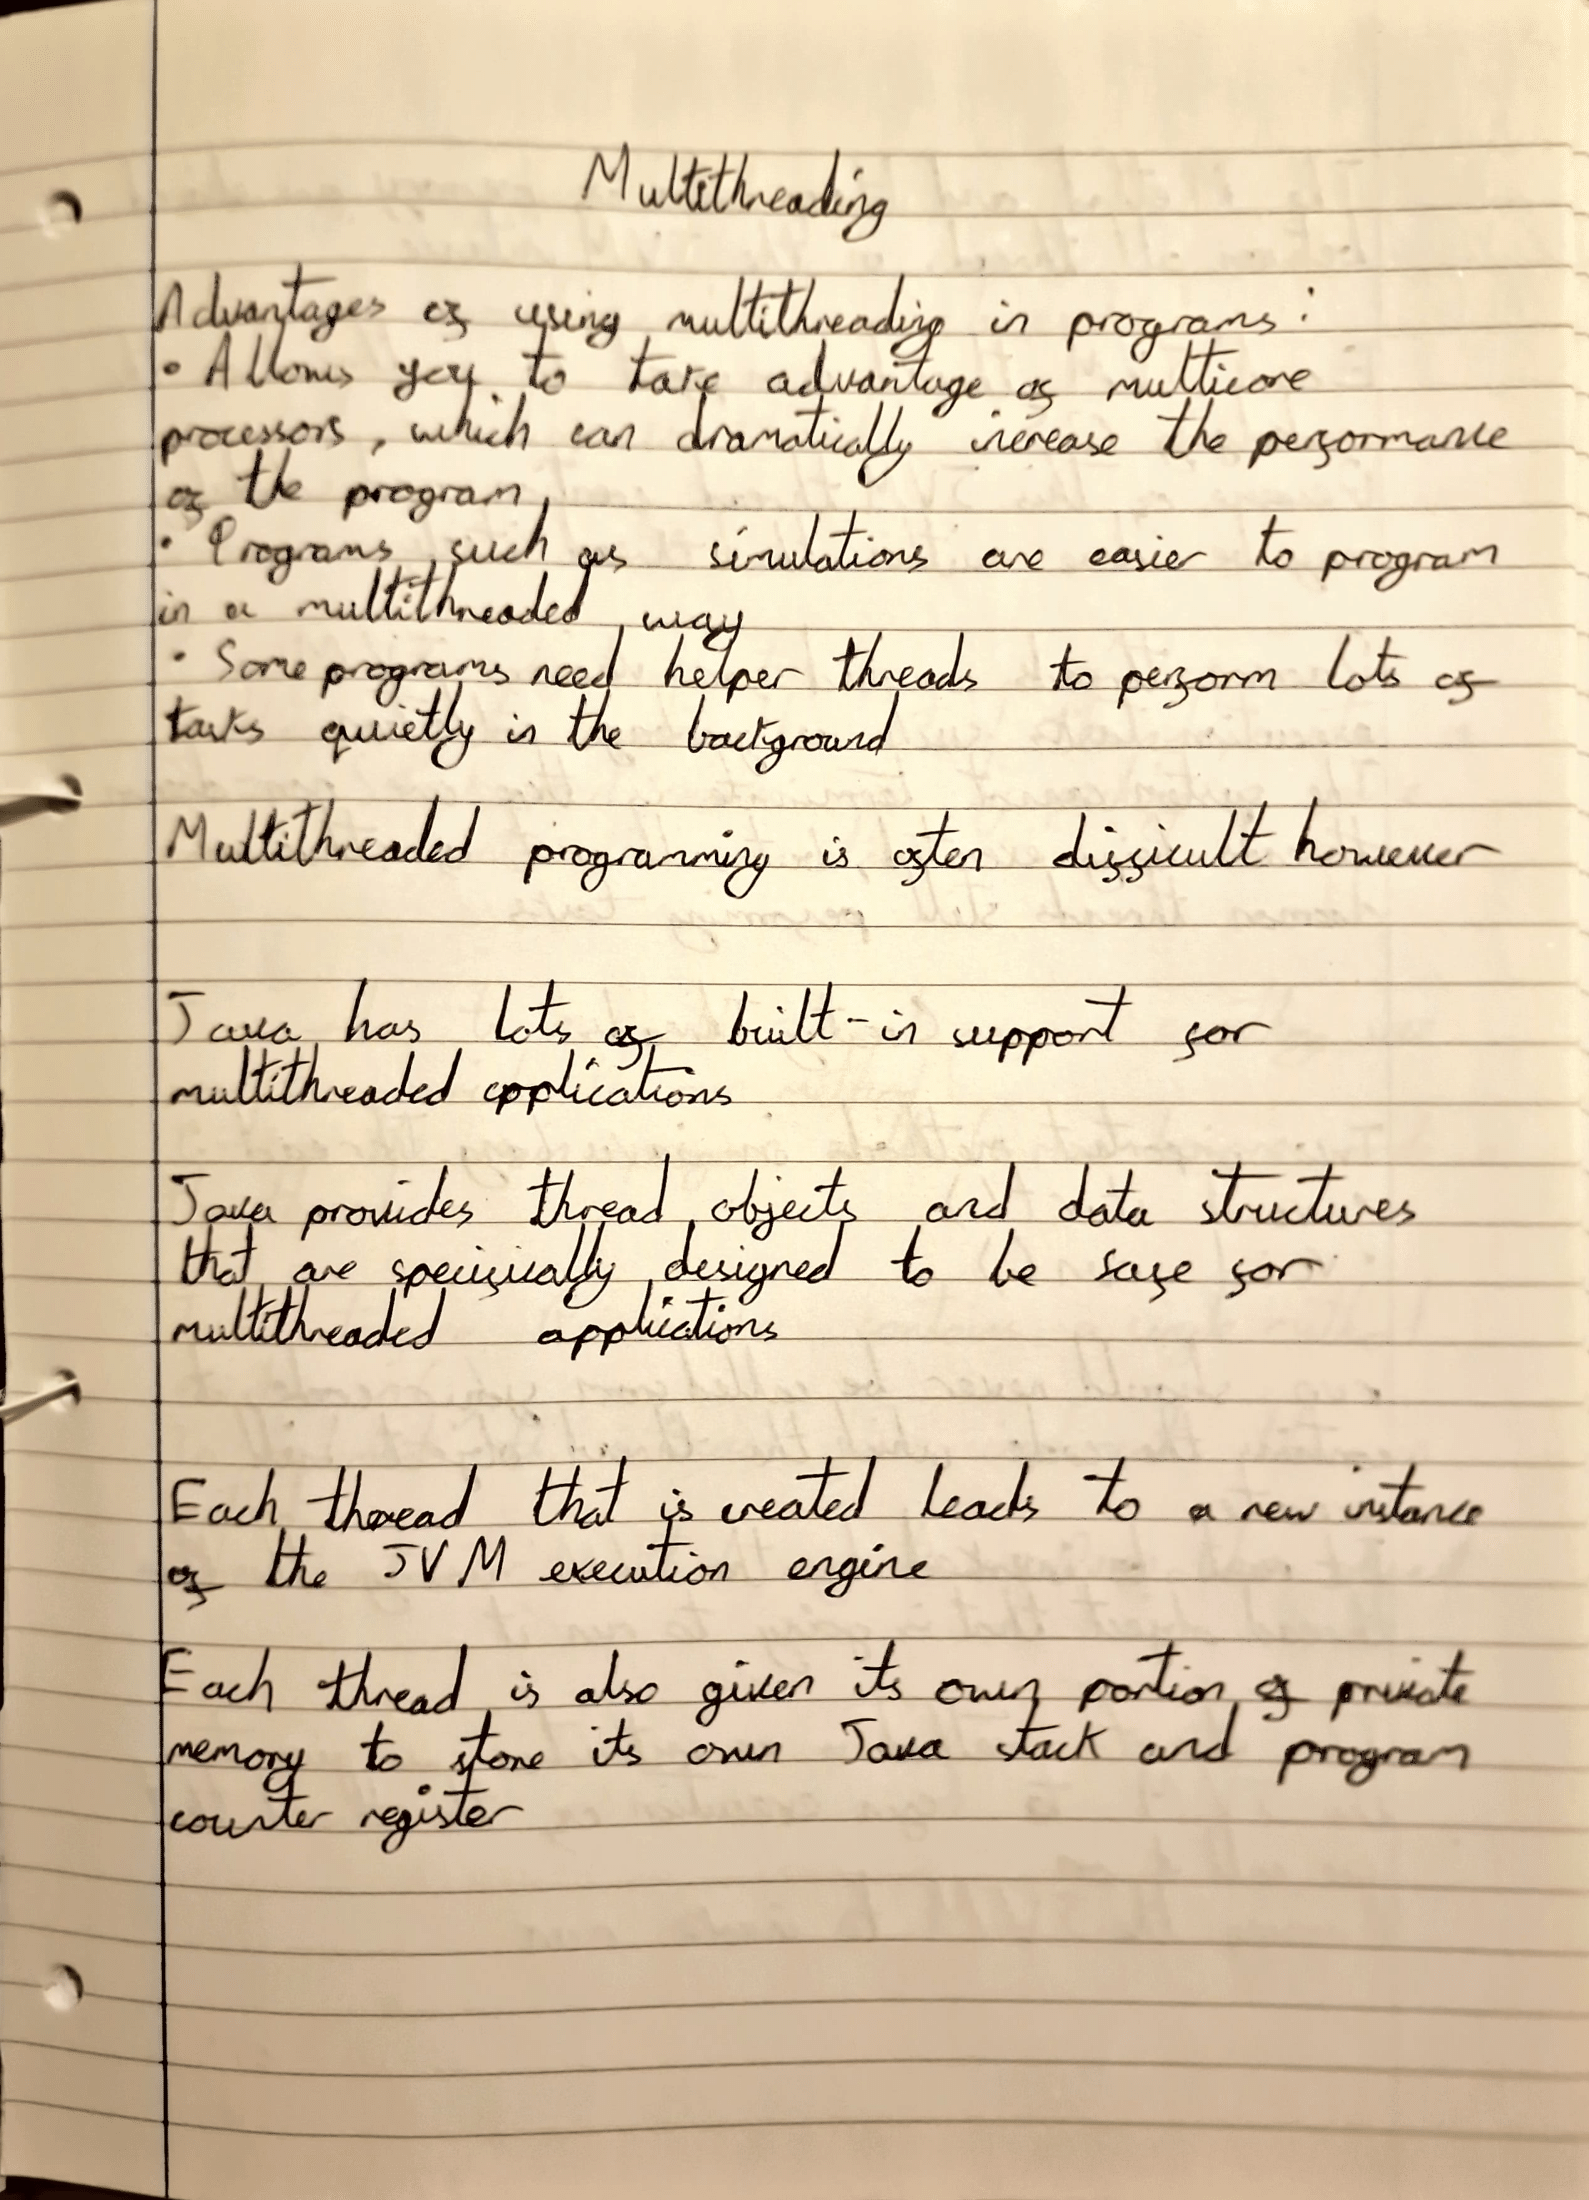 Multithreading
Advantages of using multithreading in programs:
• Allows you to take advantage of multicore
processors, which can dramatically increase the performance
of the program
• Programs such as simulations are easier to program
in a multithreaded way
• Some programs need helper threads to perform lots of
tasks quietly in the background
Multithreaded programming is often difficult however
Java has lots of built-in support for
multithreaded applications
Java provides thread objects and data structures
that are specifically designed to be safe for
multithreaded applications
Each thread that is created leads to a new instance
of the JVM execution engine
Each thread is also given its own portion of private
memory to store its own Java stack and program
counter register